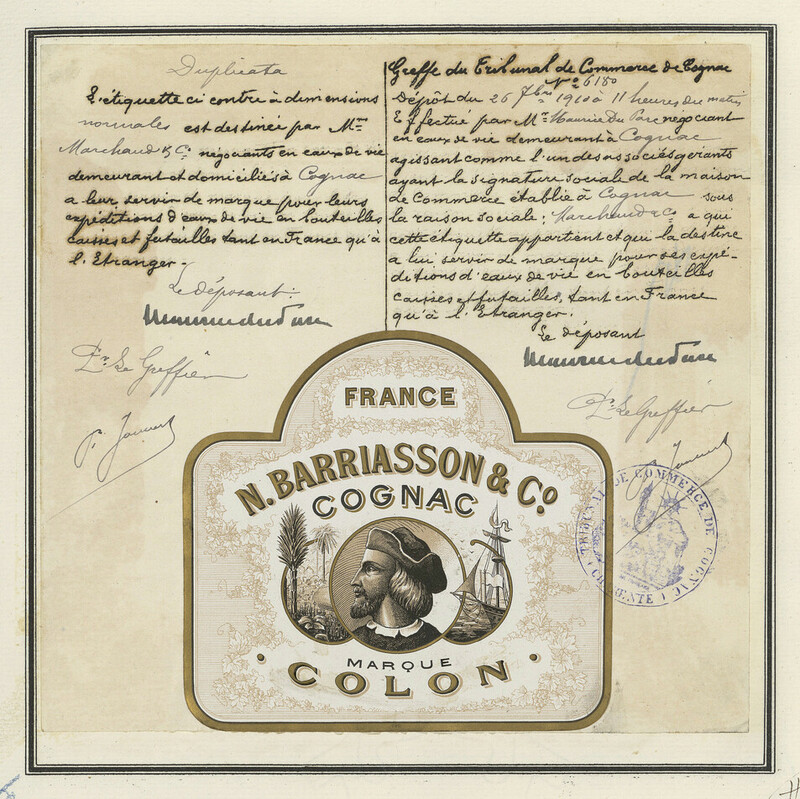 Duplicata
L'étiquette ci contre à dimensions
normales est destinée par Mrs
Marchaud & Co négociants en eaux de vie
demeurant et domiciliés à Cognac
a leur servir de marque pour leurs
expéditions d'eaux de vie en bouteilles
caisses et futailles tant en France qu'à
l'Etranger.
Le déposant:
Pr Le Greffier
Greffe du Tribunal de Commerce de Cognac
No 6180
Dépôt du 26 7bre 1910 à 11 heures du matin
Effectué par Mr Maurice Du Parc négociant
en eaux de vie demeurant à Cognac
agissant comme l'un des associés gérants
ayant la signature sociale de la maison
de Commerce établie à Cognac sous
la raison sociale: Marchaud & Co a qui
cette étiquette appartient et qui la destine
a lui servir de marque pour ses expé-
ditions d'eaux de vie en bouteilles
caisses et futailles, tant en France
qu'à l'Etranger.
Le déposant
Pr Le Greffier
FRANCE
N. BARRIASSON & Co.
COGNAC
MARQUE
COLON
TRIBUNAL DE COMMERCE DE COGNAC
CHARENTE